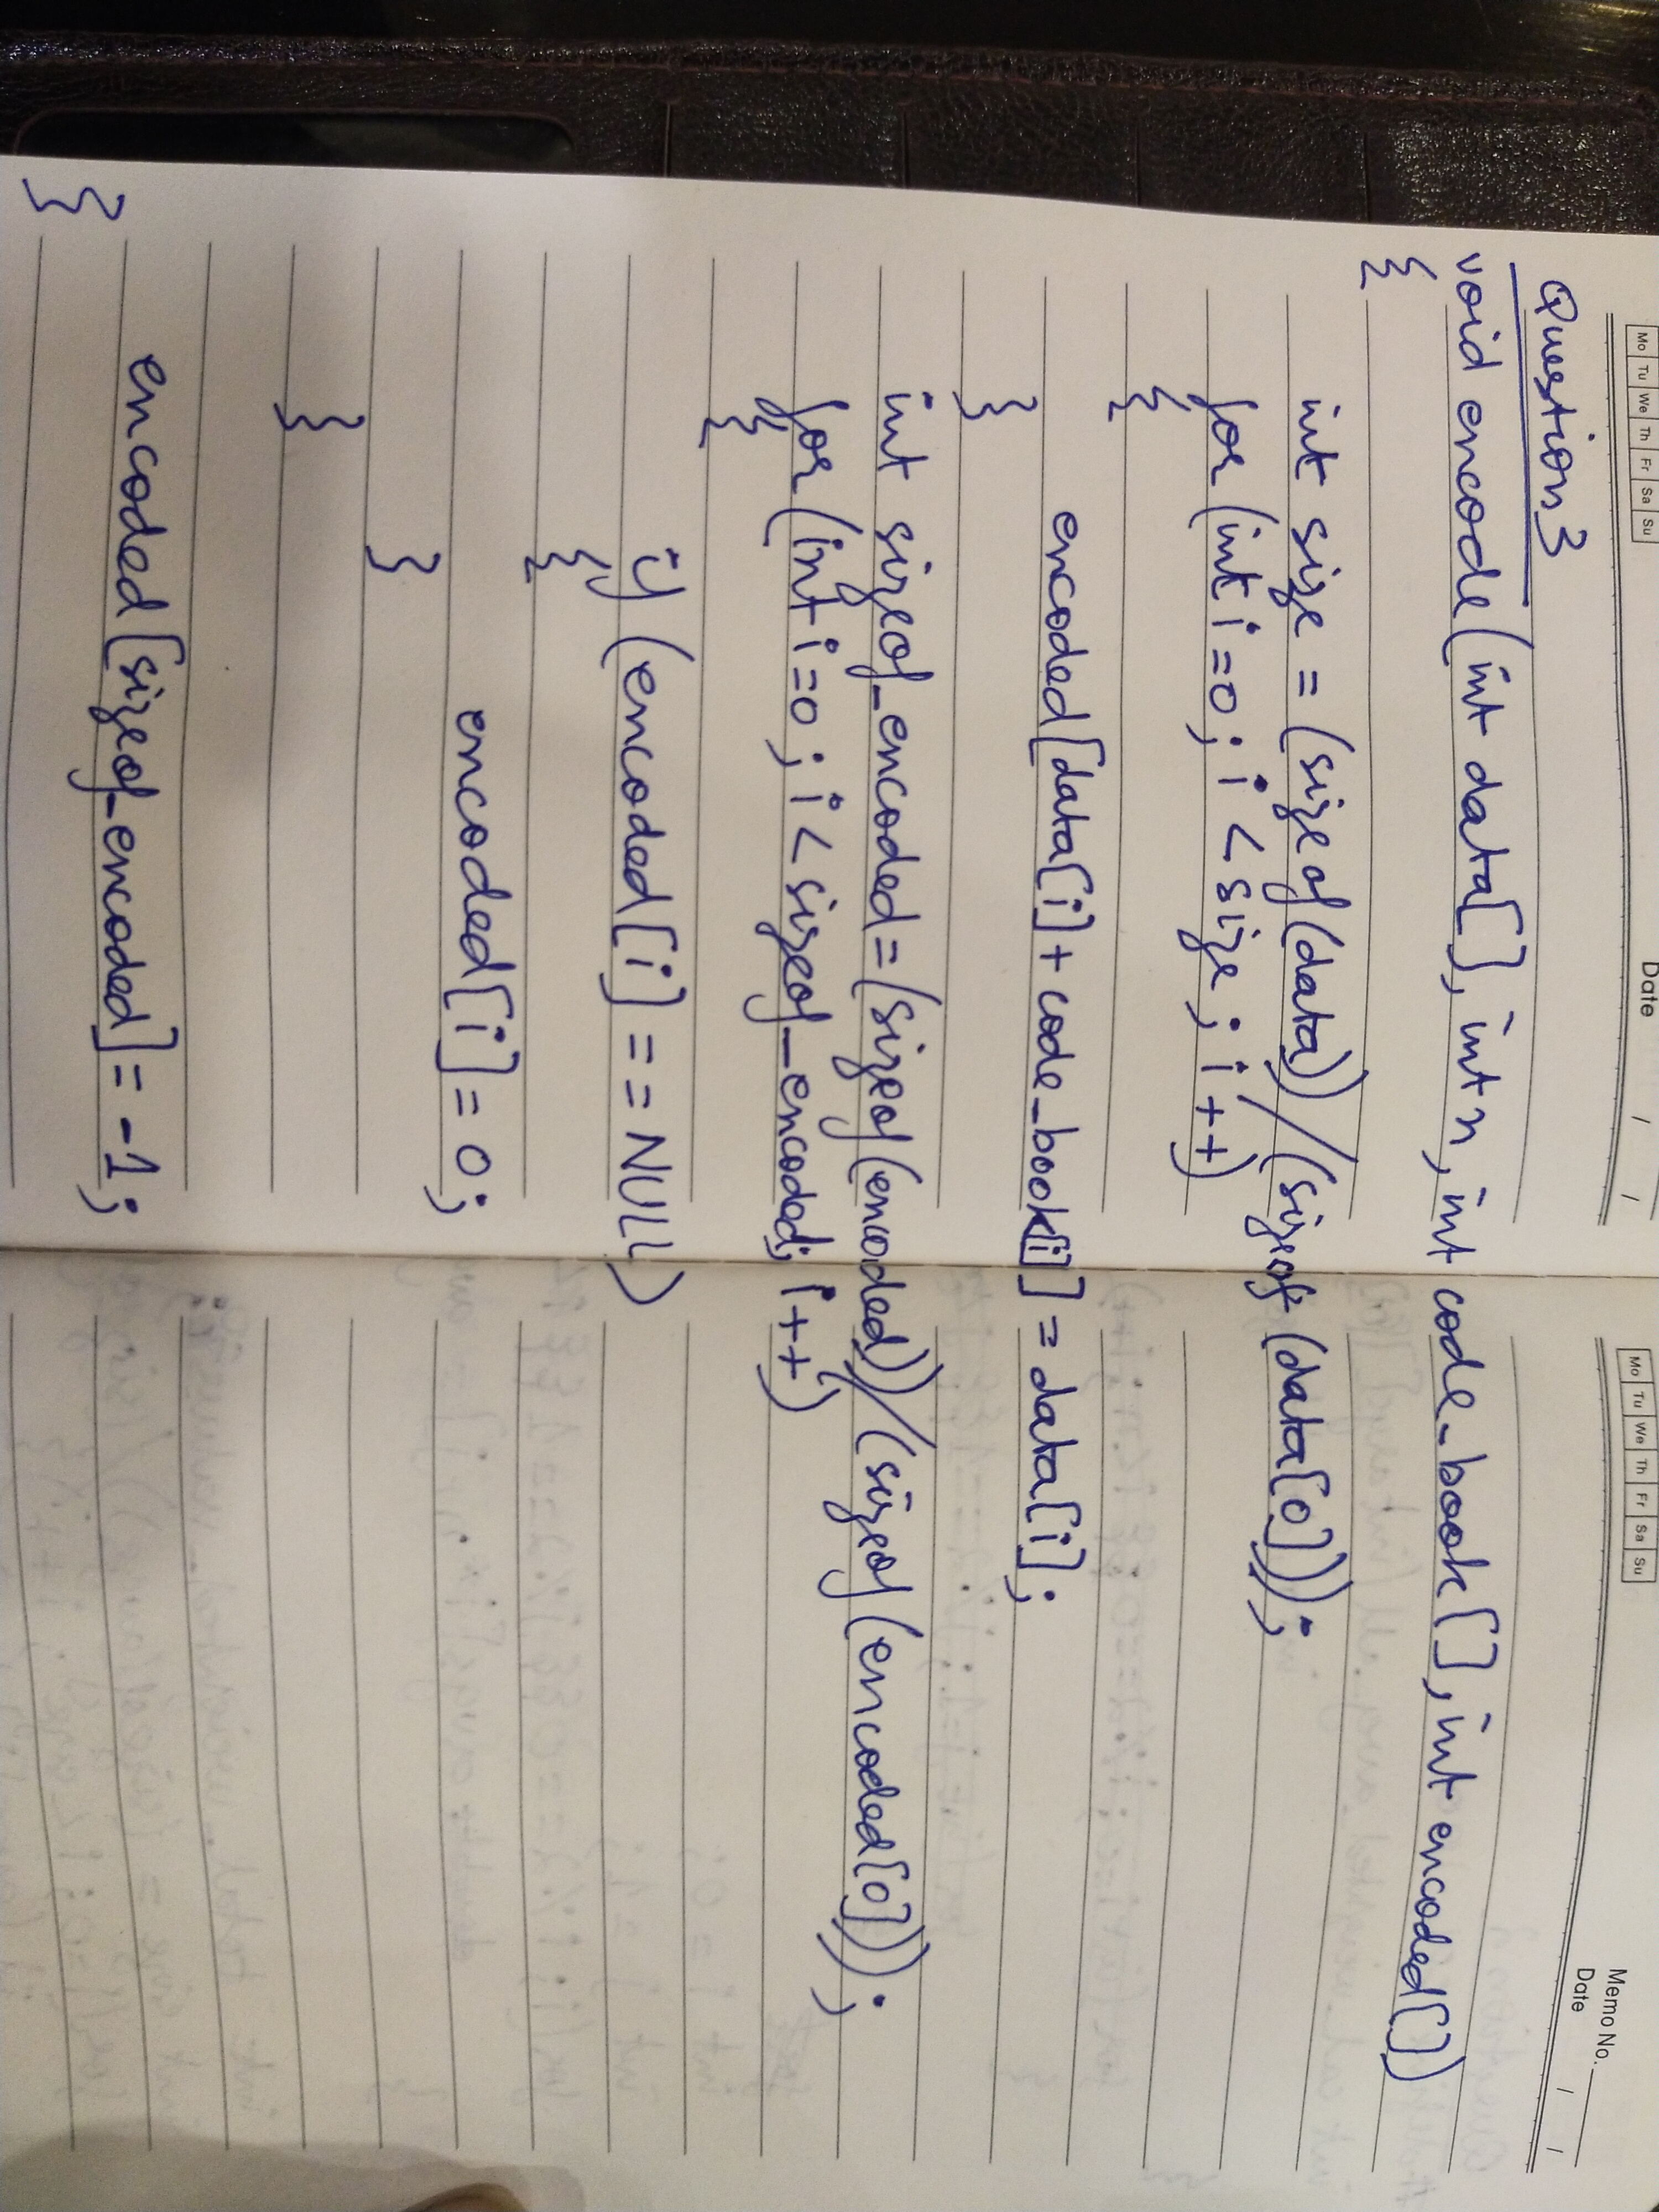 Mo Tu We Th Fr Sa Su
Date / /
Question 3
void encode(int data[], int n, int code_book[], int encoded[])
{
int size = (sizeof(data))/(sizeof(data[0]));
for(int i=0; i<size; i++)
{
encoded[data[i]+code_book[i]] = data[i];
}
int sizeof_encoded=(sizeof(encoded))/(sizeof(encoded[0]));
for(int i=0; i<sizeof_encoded; i++)
{
if (encoded[i]==NULL)
{
encoded[i]=0;
}
}
encoded[sizeof_encoded]=-1;
}
Mo Tu We Th Fr Sa Su
Memo No.
Date / /